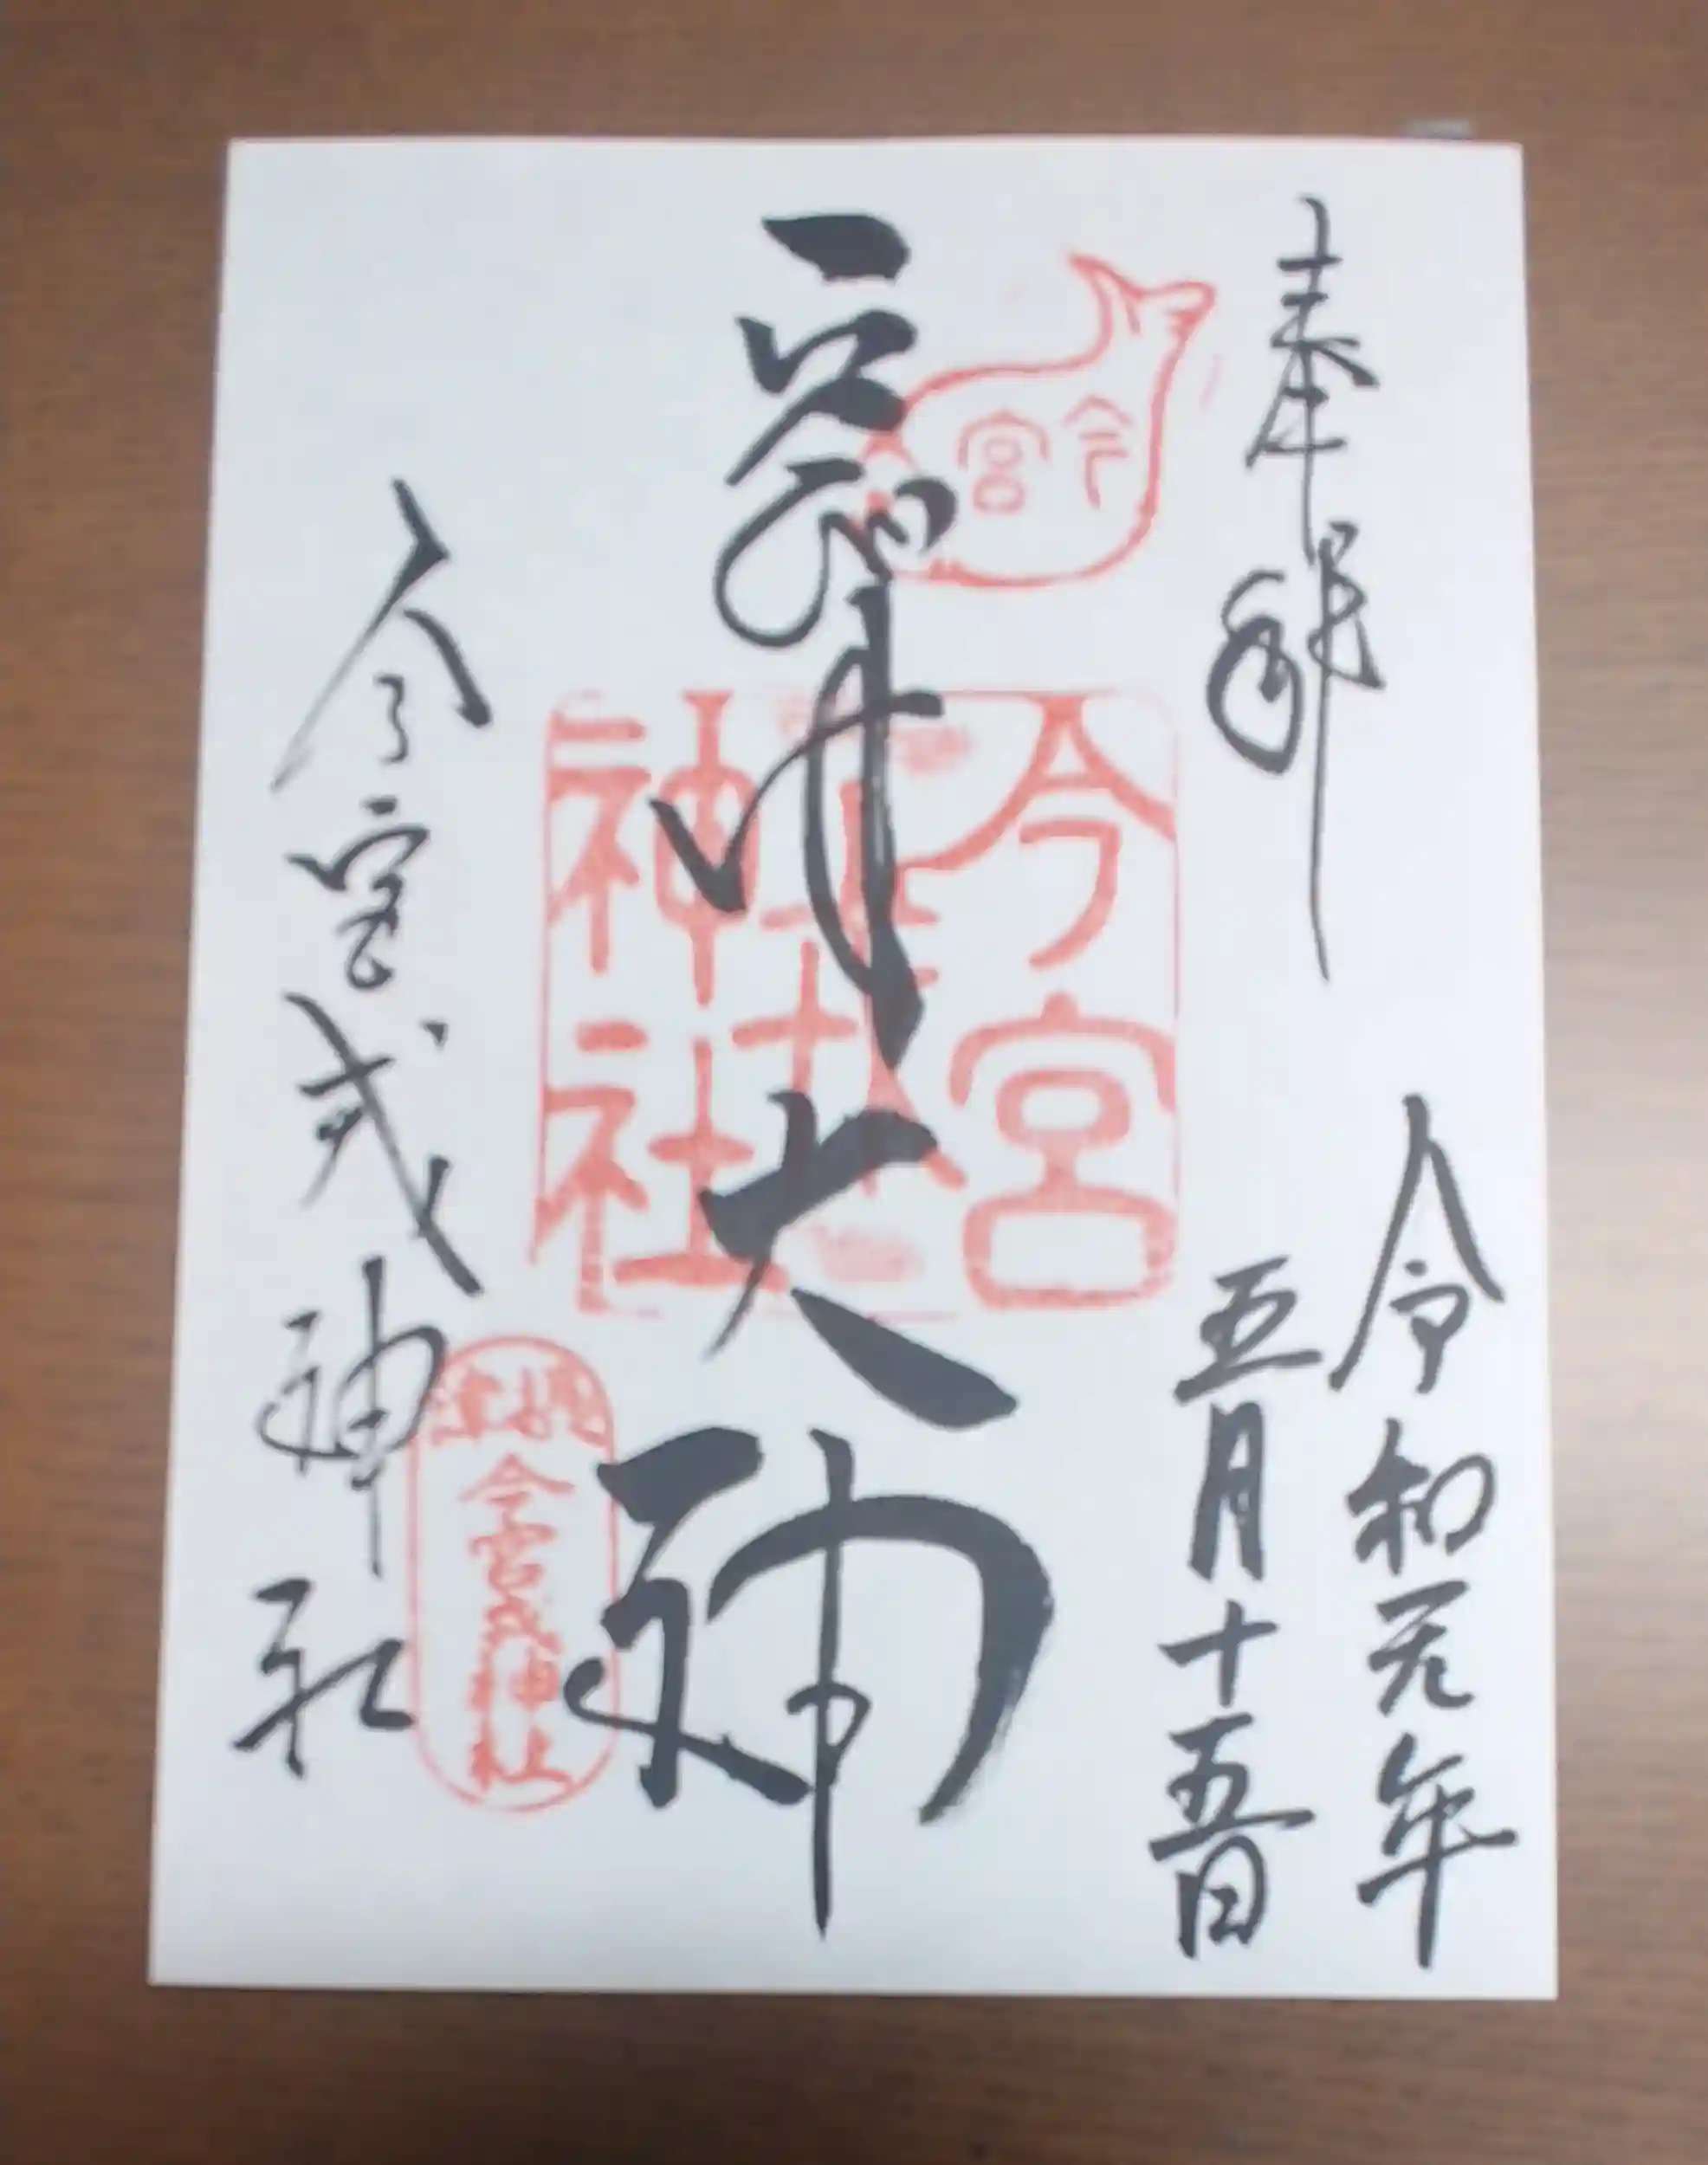 奉拝
令和元年
五月十五日
今宮
えびす大神
今宮
戎
神社
今宮戎神社
摂津
今宮戎神社